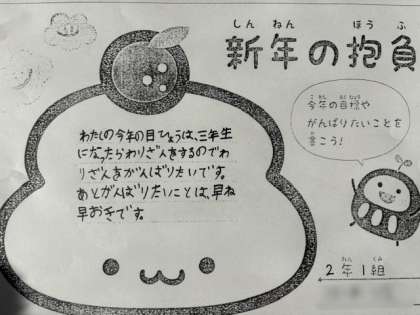 しんねん ほうふ
新年の抱負
ことし もくひょう
今年の目標や
がんばりたいことを
い
言こう!
わたしの今年の目ひょうは、三年生
になったらわりざんをするのでわ
りざんをがんばりたいです。
あとがんばりたいことは、早ね
早おきです。
ねん くみ
2年1組